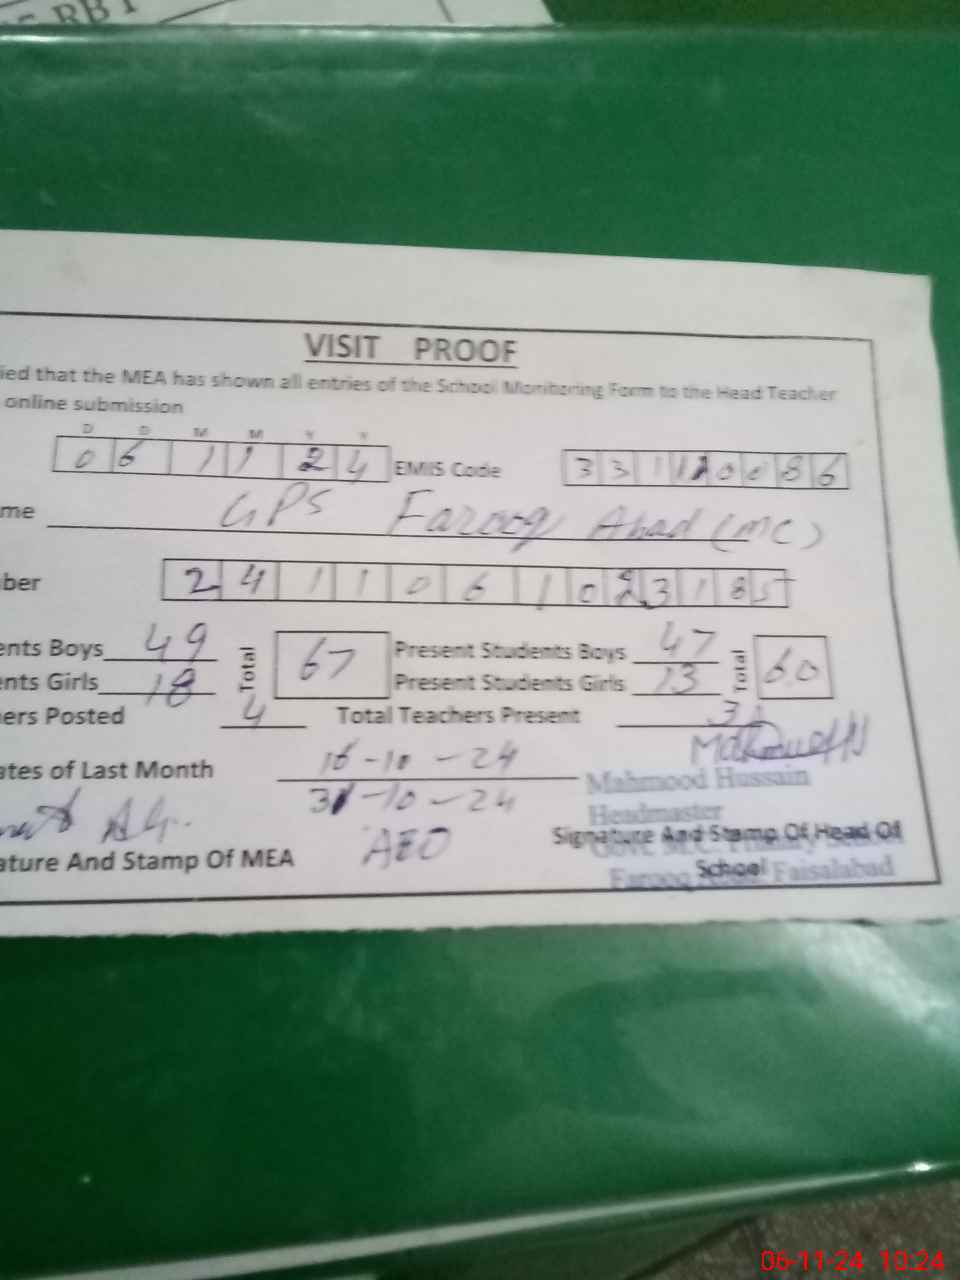 RBT
VISIT PROOF
ied that the MEA has shown all entries of the School Monitoring Form to the Head Teacher
online submission
D D M M Y Y
0 6 1 1 2 4 EMIS Code 3 3 1 1 0 0 8 6
me GPS Farooq Abad (MC)
ber 2 4 1 1 0 6 1 0 2 3 1 8 5
ents Boys 49 Total 67 Present Students Boys 47 Total 60
ents Girls 18 Present Students Girls 13
ers Posted 4 Total Teachers Present 3
ates of Last Month 16-10-24
31-10-24
Mahmood Hussain
Headmaster
AEO
Signature And Stamp Of Head Of
School
ature And Stamp Of MEA
Farooq Faisalabad
06-11-24 10:24